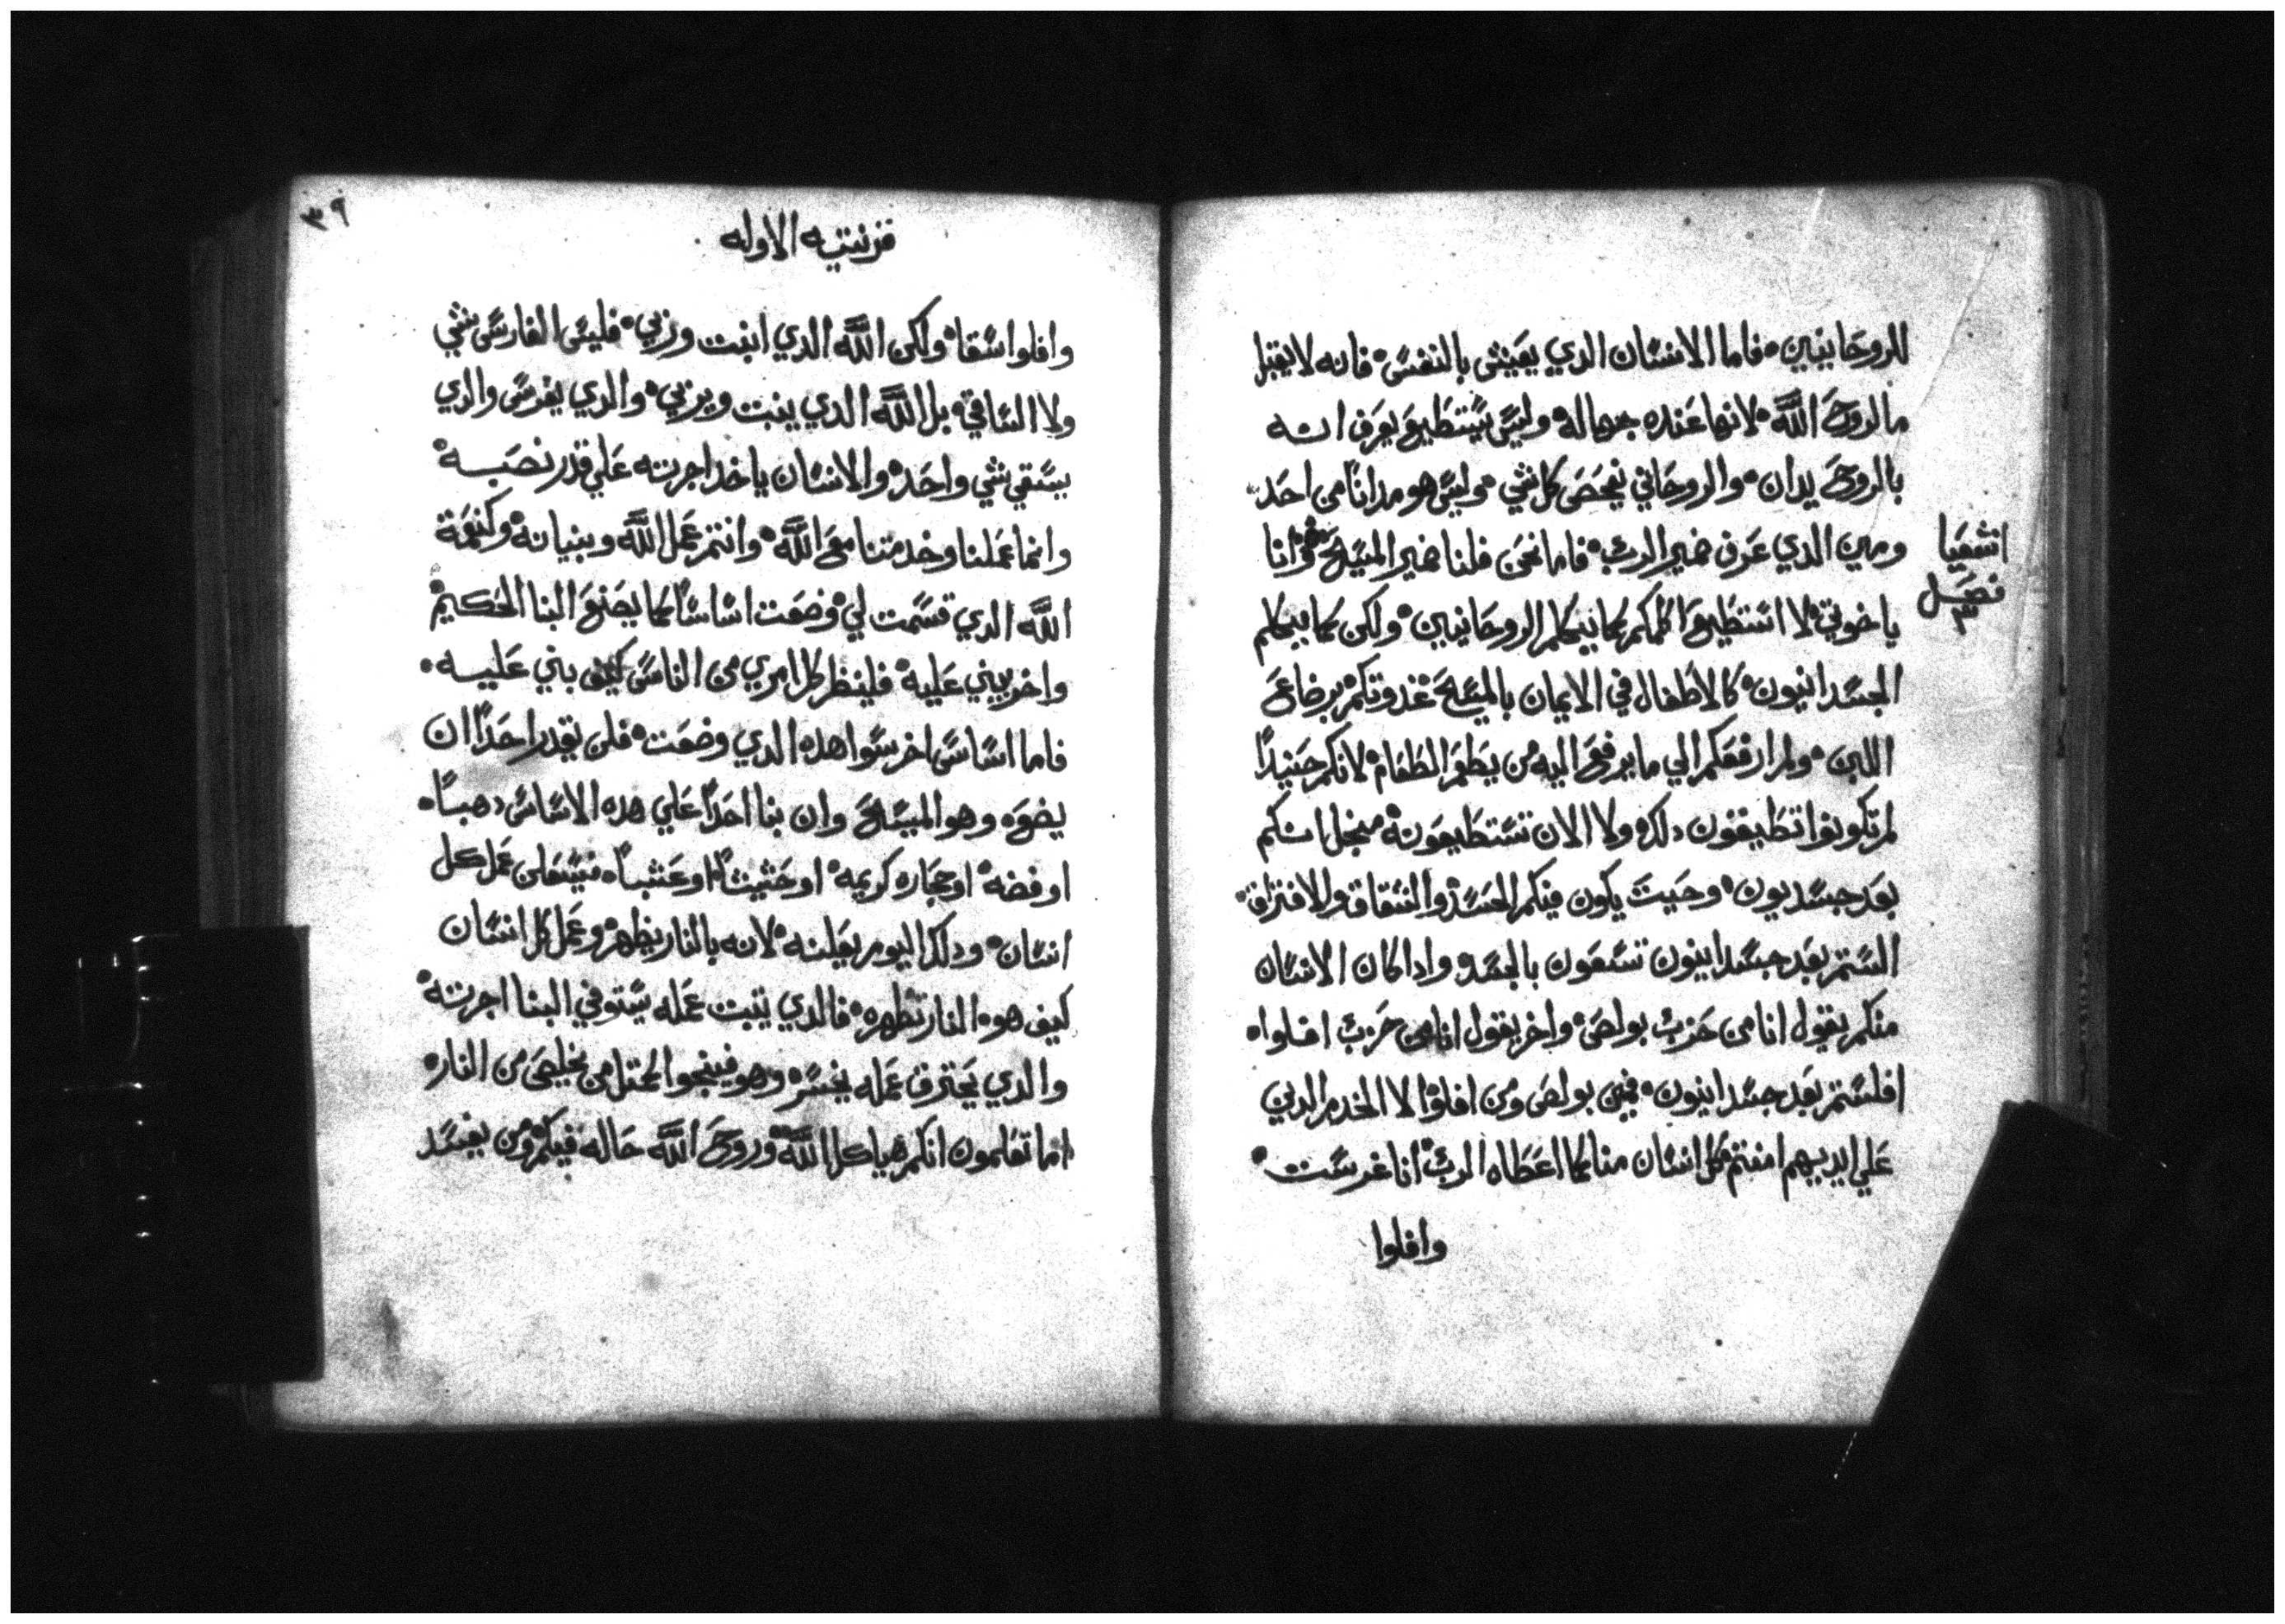 للروحانيين فاما الانسان الدي يعيش بالنفس فانه لا يقبل
ما لروح الله لانها عنده جهالة وليس يستطيع يعرف انه
بالروح يدان والروحاني يفحص كل شي وليس هو مدانا من احد
ومن الدي عرف ضمير الرب فاما نحن فلنا ضمير المسيح وانا
اشعيا
فصل
٣
ياخوتي لا استطيع اكلمكم كما يتكلم الروحانيين ولكن كما يتكلم
الجسدانيون كالاطفال في الايمان بالمسيح غدوتكم برضاع
اللبن ولم ارفعكم الي ما يرفع اليه من يطعم الطعام لانكم حنيدا
لم تكونوا تطيقون دلك ولا الان تستطيعونه منجل انكم
بعد جسديون وحيت يكون فيكم الحسد والشقاق والافتراق
الستم بعد جسدانيون تسعون بالجسد وادا كان الانسان
منكم يقول انا من حزب بولص واخر يقول انا من حزب افلوا
افلستم بعد جسدانيون فمن بولص ومن افلوا الا الخدم الدين
علي ايديهم امنتم كل انسان منا كما اعطاه الرب انا غرست
وافلوا
٣٩
قرنتيه الاوله
وافلوا سقا ولكن الله الدي انبت وربي فليس الغارس شي
ولا الساقي بل الله الدي ينبت ويربي والدي يغرس والدي
يسقي شي واحد والانسان ياخد اجرته علي قدر نصبه
وانما عملنا وخدمتنا مع الله وانتم عمل الله وبنيانه وكنعمة
الله الدي قسمت لي وضعت اساسا كما يصنع البنا الحكيم
واخر يبني عليه فلينظر كل امري من الناس كيف بني عليه
فاما اساس اخر سوا هده الدي وضعت فلن يقدر احدا ان
يضعه وهو المسيح وان بنا احدا علي هده الاساس دهبا
او فضه او حجاره كريمه او حشيشا او عشبا فيستعلن عمل كل
انسان ودلك اليوم يعلنه لانه بالنار يظهر وعمل كل انسان
كيف هو النار تظهره فالدي يتبت عمله يستوفي البنا اجرته
والدي يحترق عمله يخسر وهو فينجوا كمتل من يخلص من النار
اما تعلمون انكم هياكل الله وروح الله حاله فيكم ومن يفسد